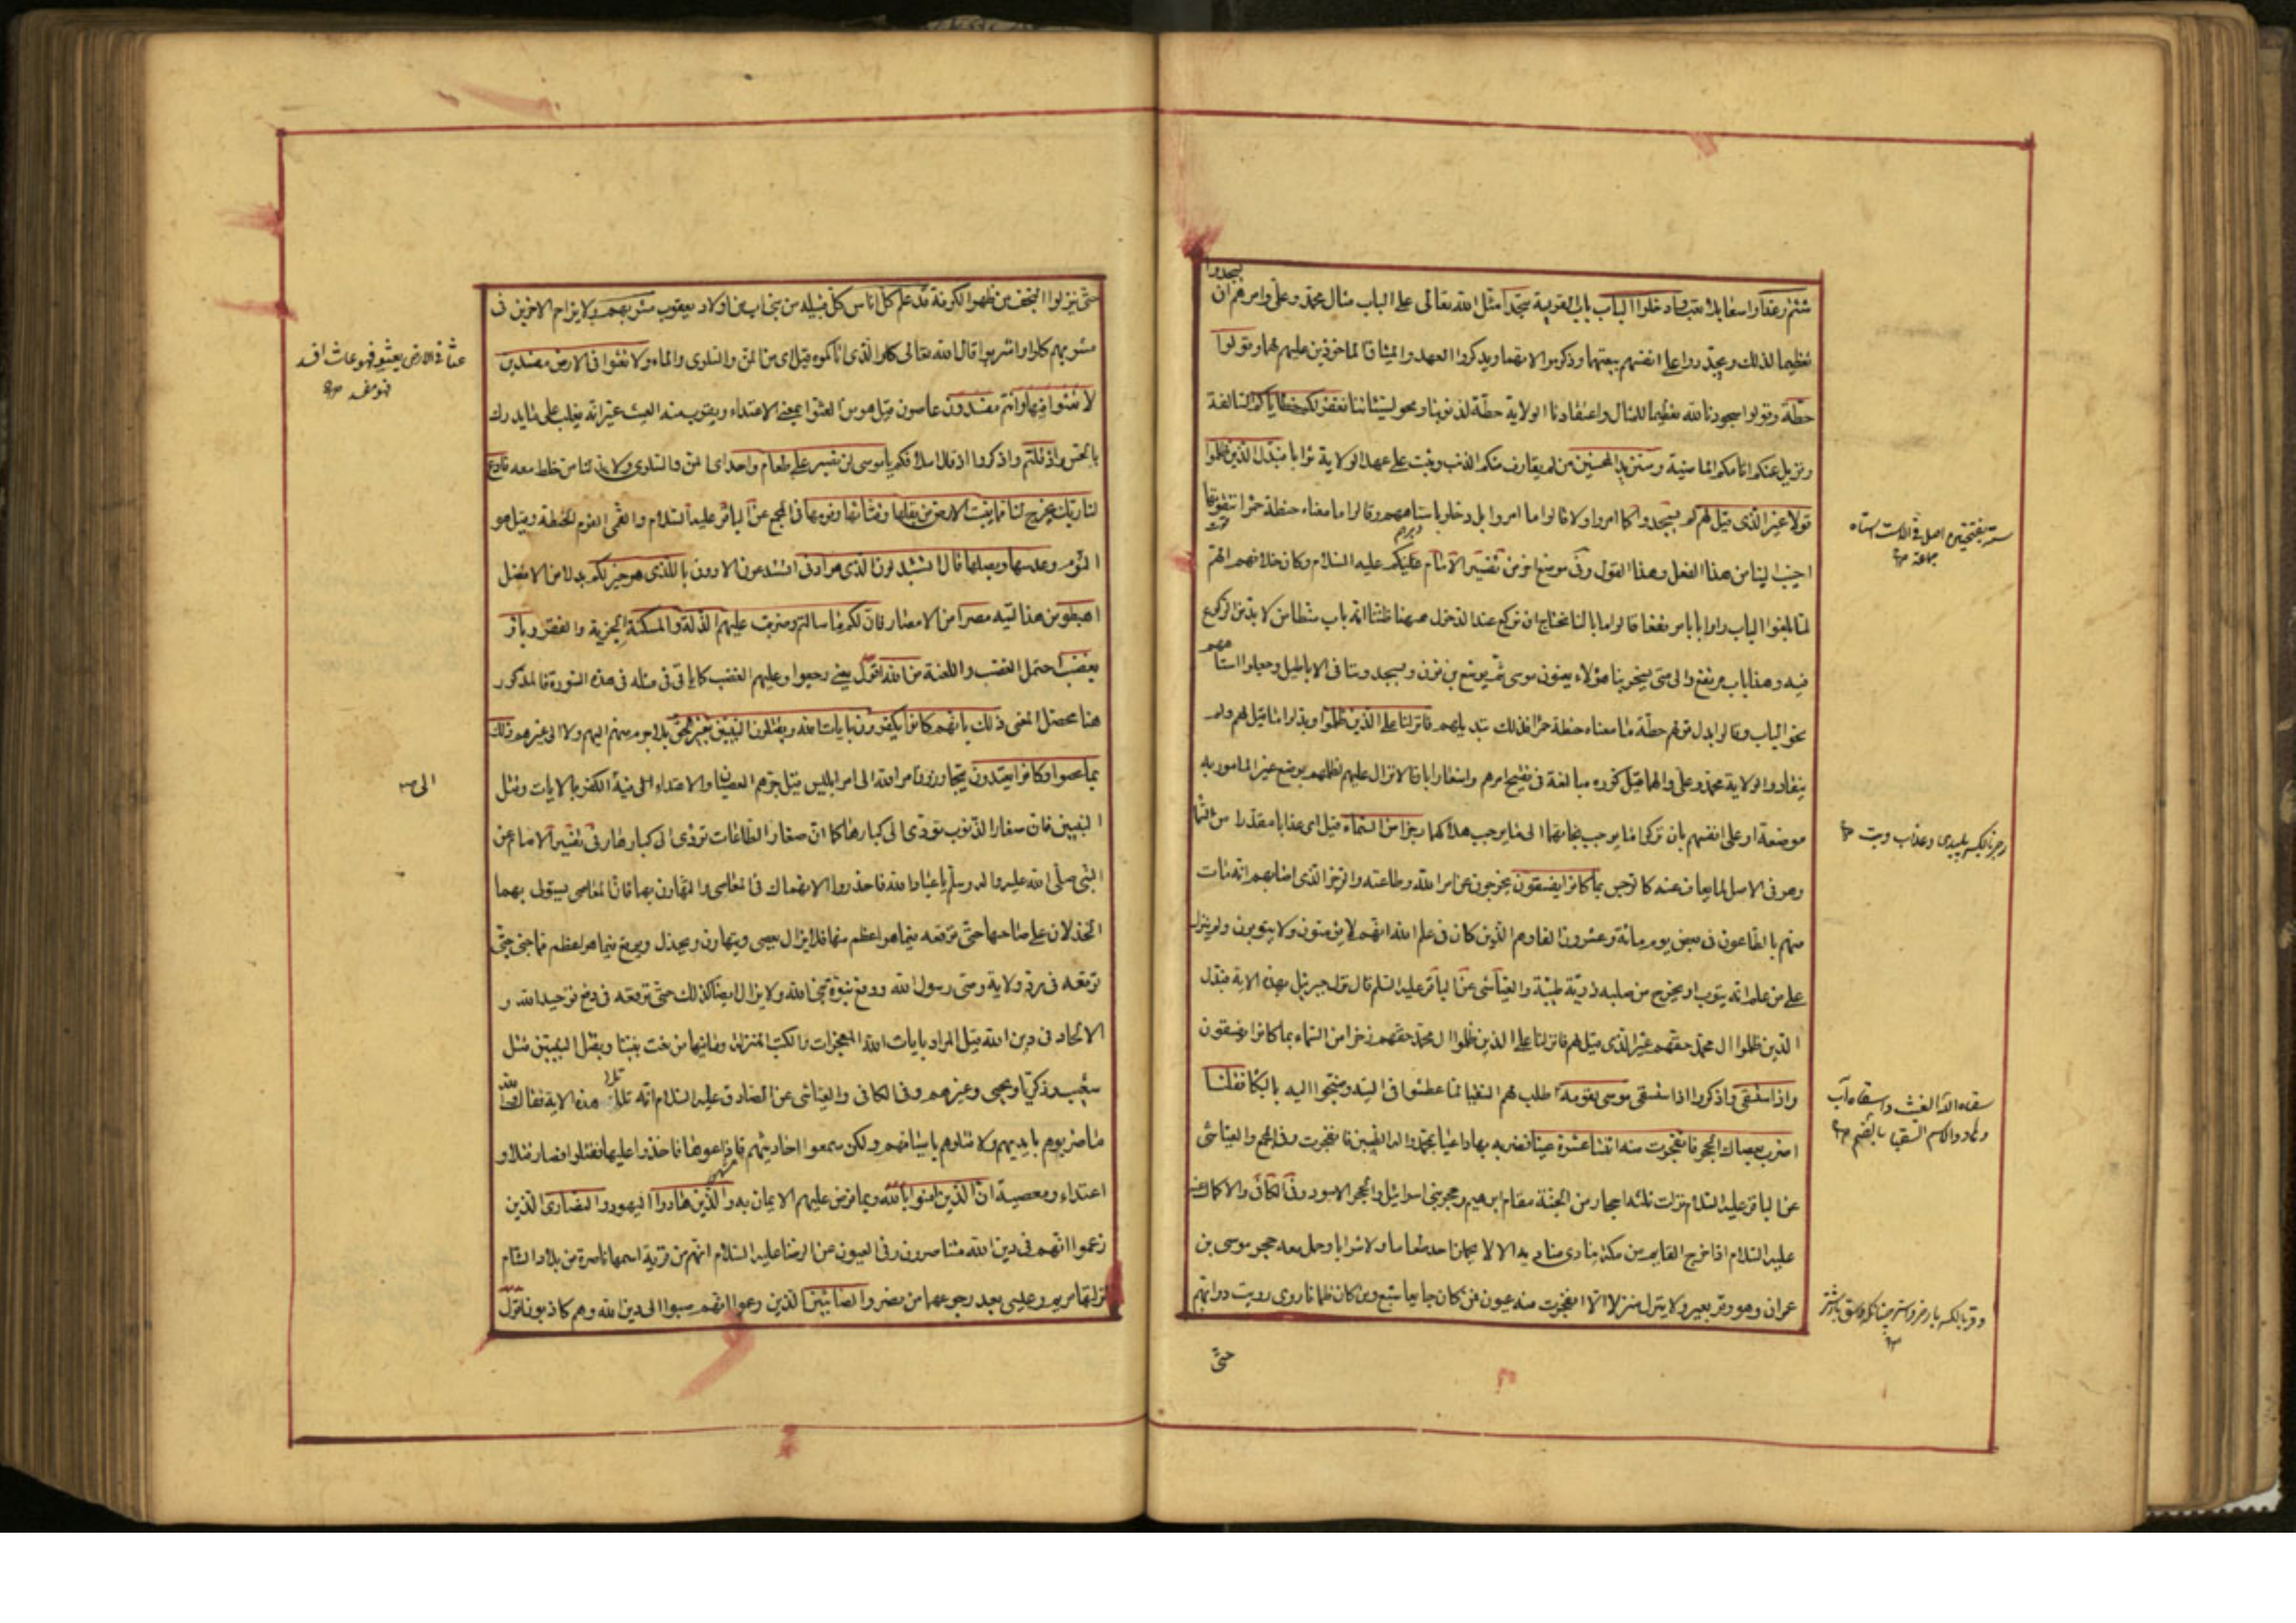 شئتم رغدا واسعا بلا تعب وادخلوا الباب باب القرية سجدا مثل الله تعالى على الباب مثال محمد وعلي وامرهم ان يسجدوا
تعظيما لذلك ويجددوا على انفسهم بيعتهما وذكر موالاتهما ويذكروا العهد والميثاق الماخوذين عليهم لهما وقولوا
حطة وقولوا سجودنا لله تعظيما للمثال واعتقادنا الولاية حطة لذنوبنا ومحو لسيئاتنا نغفر لكم خطاياكم السالفة
ونزيل عنكم اثامكم الماضية وسنزيد المحسنين من لم يقارف منكم الذنب وثبت على عهد الولاية ثوابا فبدل الذين ظلموا
قولا غير الذي قيل لهم لم يسجدوا كما امروا ولا قالوا ما امروا بل دخلوها باستاههم وقالوا ما معناه حنطة حمراء نتقوتها
احب الينا من هذا الفعل وهذا القول وفي موضع اخر من تفسير الامام عليه السلام وكان خلافهم انهم
لما بلغوا الباب راوا بابا مرتفعا قالوا ما بالنا نحتاج ان نركع عند الدخول ههنا ظننا انه باب متطامن لا بد من الركوع
فيه وهذا باب مرتفع والى متى يسخر بنا هؤلاء يعنون موسى ثم يوشع بن نون ويسجدوننا في الاباطيل وجعلوا استاههم
نحو الباب وقالوا بدل قولهم حطة ما معناه حنطة حمراء فذلك تبديلهم فانزلنا على الذين ظلموا وبدلوا ما قيل لهم ولم
ينقادوا لولاية محمد وعلي والهما قيل كرره مبالغة في تقبيح امرهم واشعارا بان الانزال عليهم لظلمهم بوضع غير المامور به
موضعه او على انفسهم بان تركوا ما يوجب نجاتها الى ما يوجب هلاكها رجزا من السماء قيل اي عذابا مقدرا من السماء
وهو في الاصل لما يعاف عنه كالرجس بما كانوا يفسقون يخرجون عن امر الله وطاعته والرجز الذي اصابهم انه مات
منهم بالطاعون في بعض يوم مائة وعشرون الفا وهم الذين كان في علم الله انهم لا يؤمنون ولا يتوبون ولم ينزل
على من علم انه يتوب او يخرج من صلبه ذرية طيبة والعياشي عن الباقر عليه السلم قال نزل جبرئيل بهذه الاية فبدل
الذين ظلموا ال محمد حقهم غير الذي قيل لهم فانزلنا على الذين ظلموا ال محمد حقهم رجزا من السماء بما كانوا يفسقون
واذ استسقى واذكروا اذ استسقى موسى لقومه طلب لهم السقيا لما عطشوا في التيه وضجوا اليه بالبكاء فقلنا
اضرب بعصاك الحجر فانفجرت منه اثنتا عشرة عينا فضربه بها داعيا بمحمد واله الطيبين فانفجرت وفي المجمع والعياشي
عن الباقر عليه السلام نزلت ثلثة احجار من الجنة مقام ابرهيم وحجر بني اسرائيل والحجر الاسود وفي الكافي والاكمال عنه
عليه السلام اذا خرج القايم من مكة ينادي مناديه الا لا يحملن احد طعاما ولا شرابا وحمل معه حجر موسى بن
عمران وهو وقر بعير ولا ينزل منزلا الا انفجرت منه عيون فمن كان جايعا شبع ومن كان ظمانا روى ورويت دوابهم
حتى
سته بفتحتين اصل في الاست استاه
جماعة
رجز بالكسر پليدى وعذاب
سقاه الله الغيث واسقاه
والاسم السقيا بالضم
وقر بالكسر بار خر واستر چنانكه وسق بار شتر
حتى ينزلوا النجف من ظهر الكوفة قد علم كل اناس كل قبيلة من بني اب من اولاد يعقوب مشربهم ولا يزاحم الاخرين في
مشربهم كلوا واشربوا قال الله تعالى كلوا الذي اتاكموه قيل اي من المن والسلوى والماء ولا تعثوا في الارض مفسدين
لا تعثوا فيها وانتم مفسدون عاصون قيل هو من العثو بمعنى الاعتداء ويقرب منه العيث غير انه يغلب على ما يدرك
بالحس واذ قلتم واذكروا اذ قال اسلافكم يا موسى لن نصبر على طعام واحد اي المن والسلوى ولا بد لنا من خلط معه فادع
لنا ربك يخرج لنا مما تنبت الارض من بقلها وقثائها وفومها في المجمع عن الباقر عليه السلام والقمي الفوم الحنطة وقيل هو
الثوم وعدسها وبصلها قال اتستبدلون الذي هو ادنى اتستدعون الادون بالذي هو خير لكم بدلا من الافضل
اهبطوا من هذا التيه مصرا من الامصار فان لكم ما سالتم وضربت عليهم الذلة والمسكنة الجزية والفقر وباؤ
بغضب احتمل الغضب واللعنة من الله اقول يعني رجعوا وعليهم الغضب كما ياتي في مثله في هذه السورة فالمذكور
هنا محصل المعنى ذلك بانهم كانوا يكفرون بايات الله ويقتلون النبيين بغير الحق بلا جرم منهم اليهم ولا الى غيرهم ذلك
بما عصوا وكانوا يعتدون يتجاوزون امر الله الى امر ابليس قيل جرهم العصيان والاعتداء الى فيه الكفر بالايات وقتل
النبيين فان صغار الذنوب تؤدي الى كبارها كما ان صغار الطاعات تؤدي الى كبارها وفي تفسير الامام عن
النبي صلى الله عليه واله وسلم يا عباد الله فاحذروا الانهماك في المعاصي والتهاون بها فان المعاصي يستولى بها
الخذلان على صاحبها حتى توقعه فيما هو اعظم منها فلا يزال يعصي ويتهاون ويخذل ويوقع فيما هو اعظم مما جنى حتى
توقعه في رد ولاية وصي رسول الله ودفع نبوة نبي الله ولا يزال ايضا كذلك حتى توقعه في دفع توحيد الله و
الالحاد في دين الله قيل المراد بايات الله المعجزات والكتب المنزلة وما فيها من نعت نبينا ويقتل النبيين مثل
شعيب وزكريا ويحيى وغيرهم وفي الكافي والعياشي عن الصادق عليه السلام انه تلا هذه الاية فقال والله
ما ضربوهم بايديهم ولا قتلوهم باسيافهم ولكن سمعوا احاديثهم فاذاعوها فاخذوا عليها فقتلوا فصار قتلا و
اعتداء ومعصية ان الذين امنوا بالله وبما فرض عليهم الايمان به والذين هادوا اليهود والنصارى الذين
زعموا انهم في دين الله متناصرون وفي العيون عن الرضا عليه السلام انهم من قرية اسمها ناصرة من بلاد الشام
نزلتها مريم وعيسى بعد رجوعهما من مصر والصابئين الذين زعموا انهم صبوا الى دين الله وهم كاذبون اقول
عثا في الارض يعثو فهو عاث افسد
فهو مفسد
الى